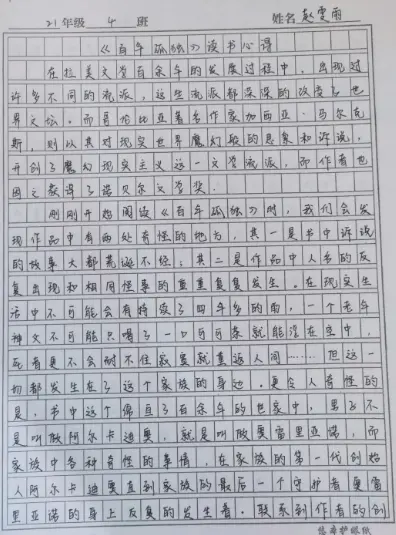 21年级 4 班 姓名赵雯雨
《百年孤独》读书心得
在拉美文学百余年的发展过程中，出现过
许多不同的流派，这些流派都深深的改变了世
界文坛。而哥伦比亚著名作家加西亚·马尔克
斯，则以其对现实世界魔幻般的想象和诉说，
开创了魔幻现实主义这一文学流派，而作者也
因文获得了诺贝尔文学奖。
刚刚开始阅读《百年孤独》时，我们会发
现作品中有两处奇怪的地方，其一是书中诉说
的故事大都荒诞不经；其二是作品中人名的反
复出现和相同怪事的重重复复发生。在现实生
活中不可能会有持续了四年多的雨，一个老年
神父不可能只喝了一口可可茶就能浮在空中，
死者更不会耐不住寂寞就重返人间……但这一
切都发生在了这个家族的身边。更令人奇怪的
是，书中这个绵亘了百余年的世家中，男子不
是叫做阿尔卡迪奥，就是叫做奥雷里亚诺，而
家族中各种奇怪的事情，在家族的第一代创始
人阿尔卡迪奥直到家族的最后一个守护者奥雷
里亚诺的身上反复的发生着。联系到作者的创
恁库护眼纸